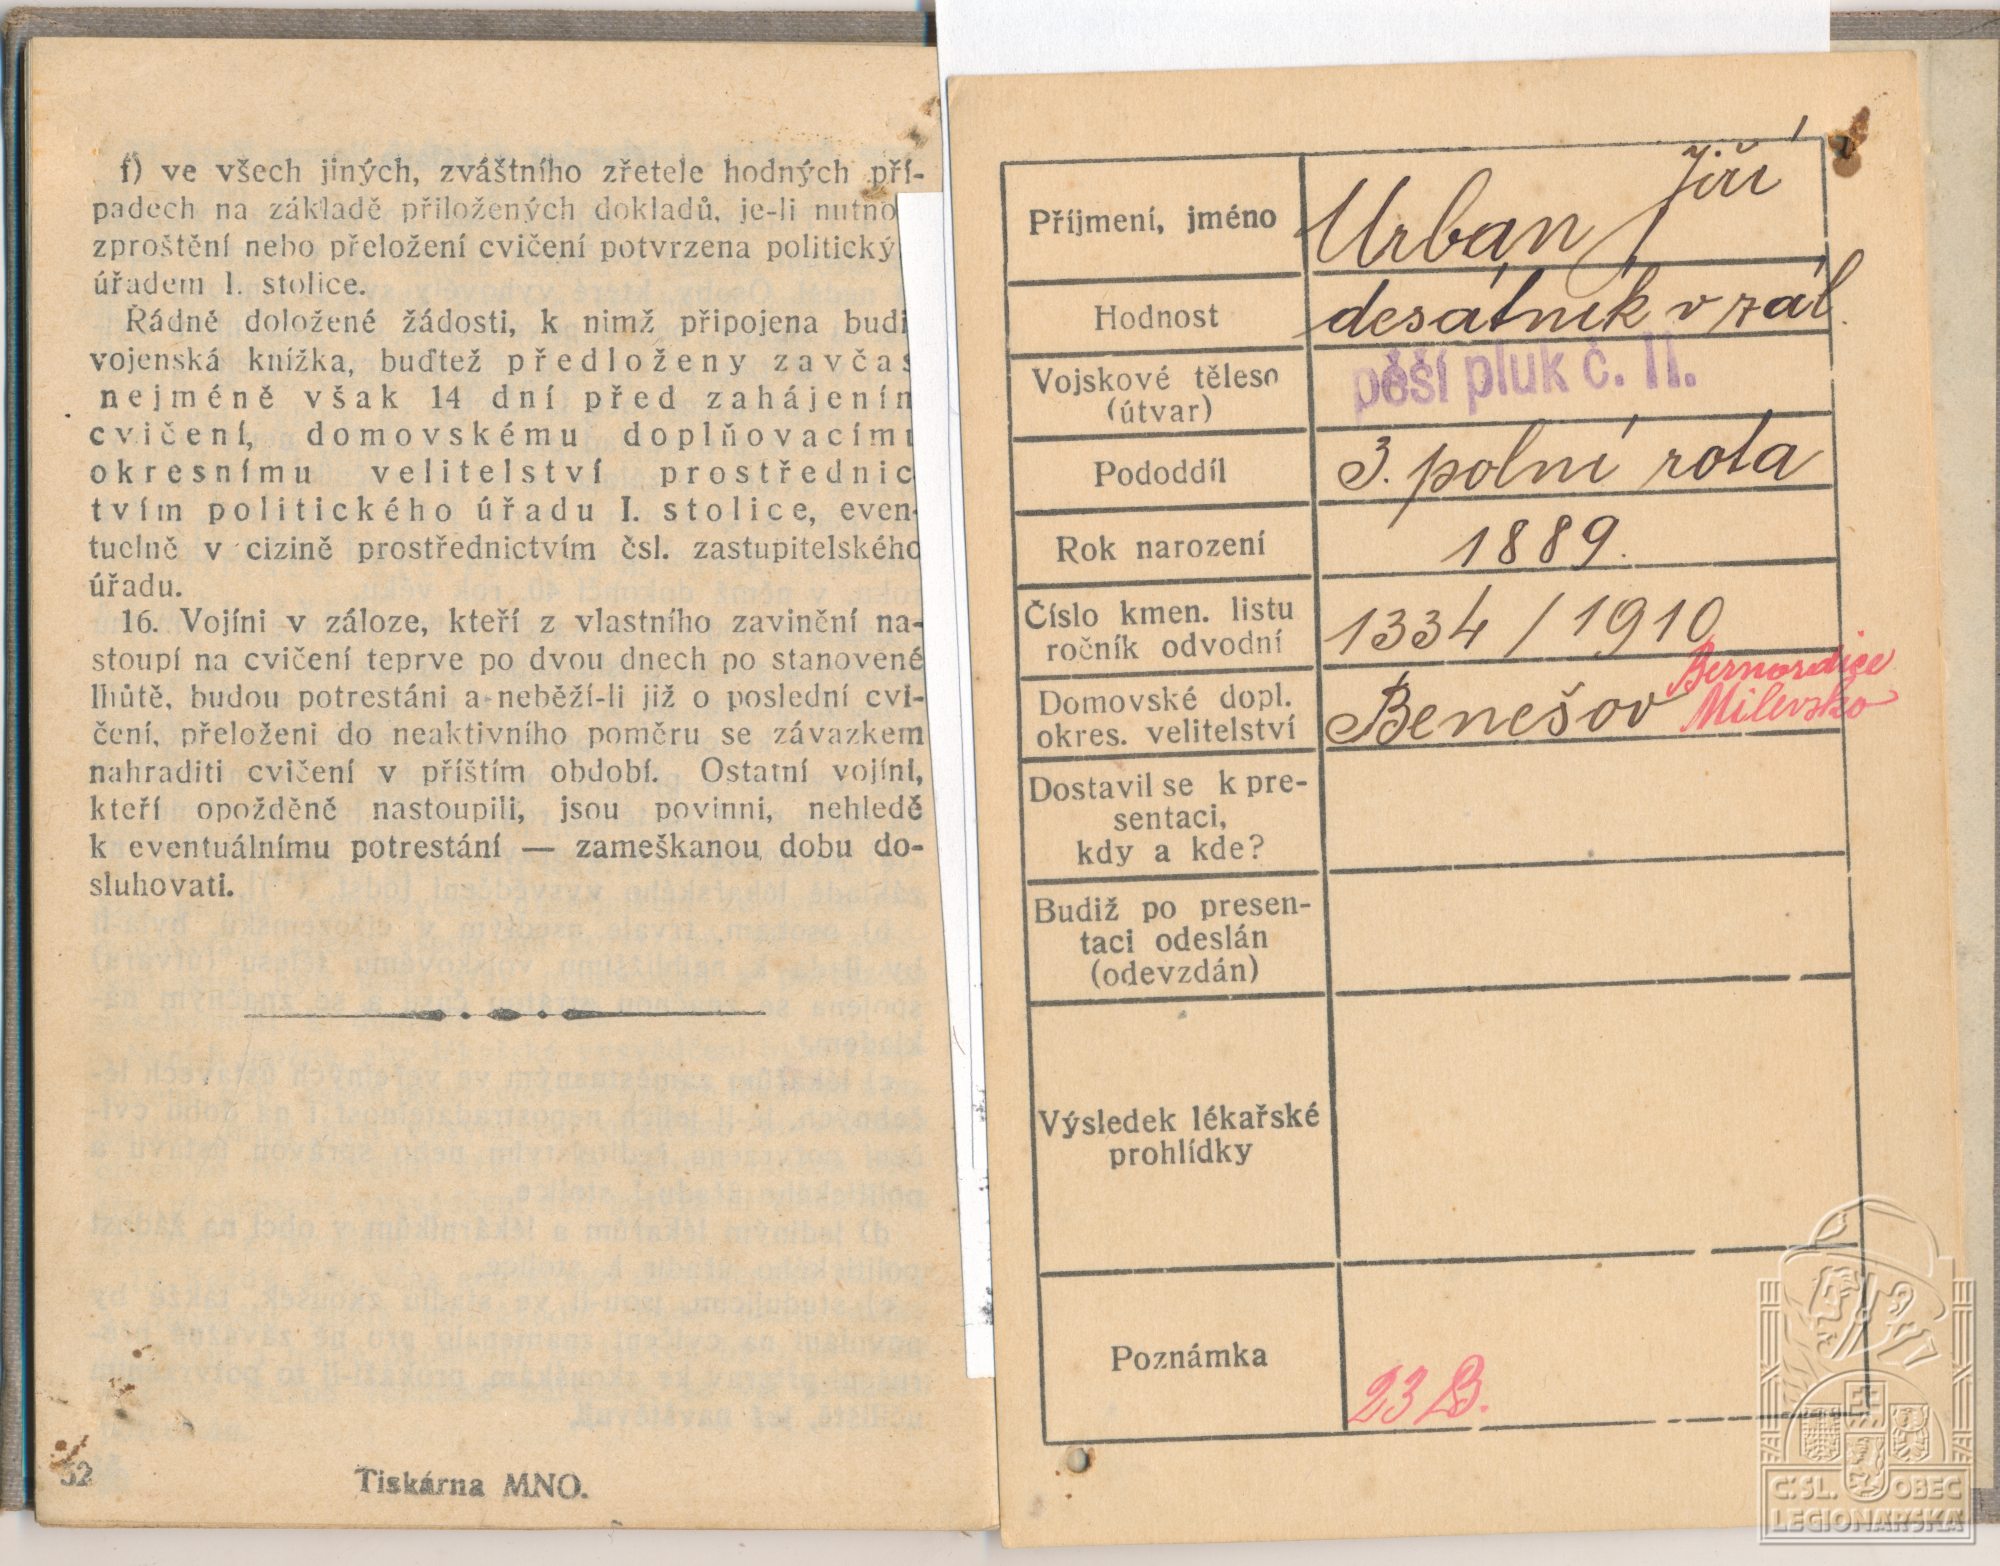 f) ve všech jiných, zvláštního zřetele hodných pří-
padech na základě přiložených dokladů, je-li nutno
zproštění nebo přeložení cvičení potvrzena politický
úřadem I. stolice.
Řádně doložené žádosti, k nimž připojena budi
vojenská knížka, buďtež předloženy zavčas
nejméně však 14 dní před zahájením
cvičení, domovskému doplňovacímu
okresnímu velitelství prostřednic
tvím politického úřadu I. stolice, even-
tuelně v cizině prostřednictvím čsl. zastupitelského
úřadu.
16. Vojíni v záloze, kteří z vlastního zavinění na-
stoupí na cvičení teprve po dvou dnech po stanovené
lhůtě, budou potrestáni a neběží-li již o poslední cvi-
čení, přeloženi do neaktivního poměru se závazkem
nahraditi cvičení v příštím období. Ostatní vojíni,
kteří opožděně nastoupili, jsou povinni, nehledě
k eventuálnímu potrestání — zameškanou dobu do-
sluhovati.
52
Tiskárna MNO.
Příjmení, jméno Urban Jiří
Hodnost desátník v zál.
Vojskové těleso
(útvar) pěší pluk č. 11.
Pododdíl 3. polní rota
Rok narození 1889.
Číslo kmen. listu
ročník odvodní 1334/1910
Domovské dopl.
okres. velitelství Benešov Bernardice
Milevsko
Dostavil se k pre-
sentaci,
kdy a kde?
Budiž po presen-
taci odeslán
(odevzdán)
Výsledek lékařské
prohlídky
Poznámka 23 B.
Č.SL. OBEC
LEGIONÁŘSKÁ